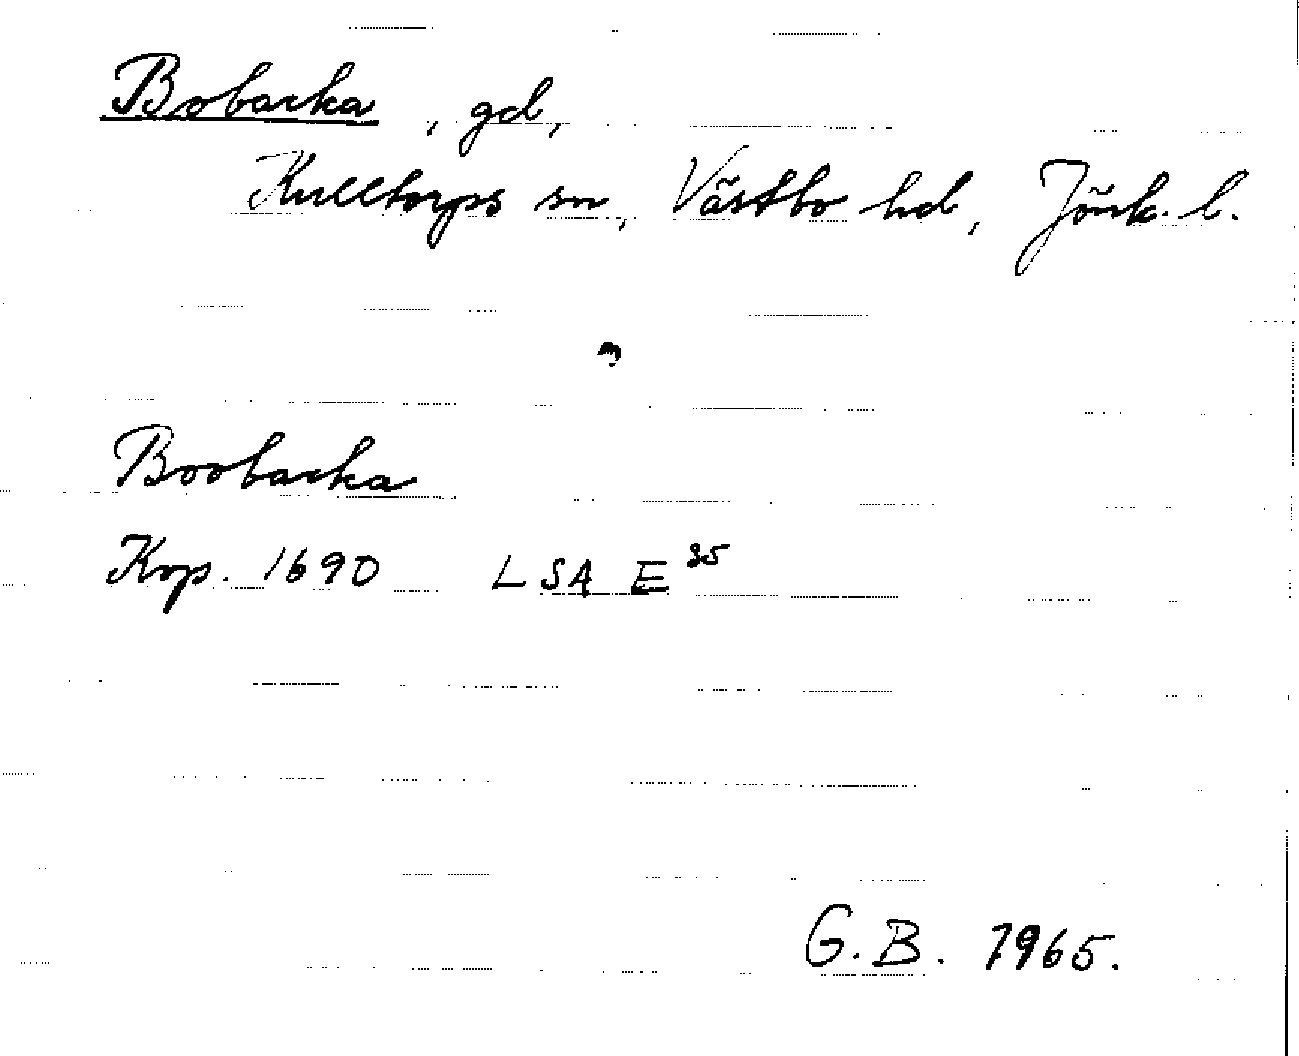 Bobacka, gd,
Kulltorps sn, Västbo hd, Jönk. l.
Boobacka
Kop. 1690 LSA E 35
G.B. 1965.